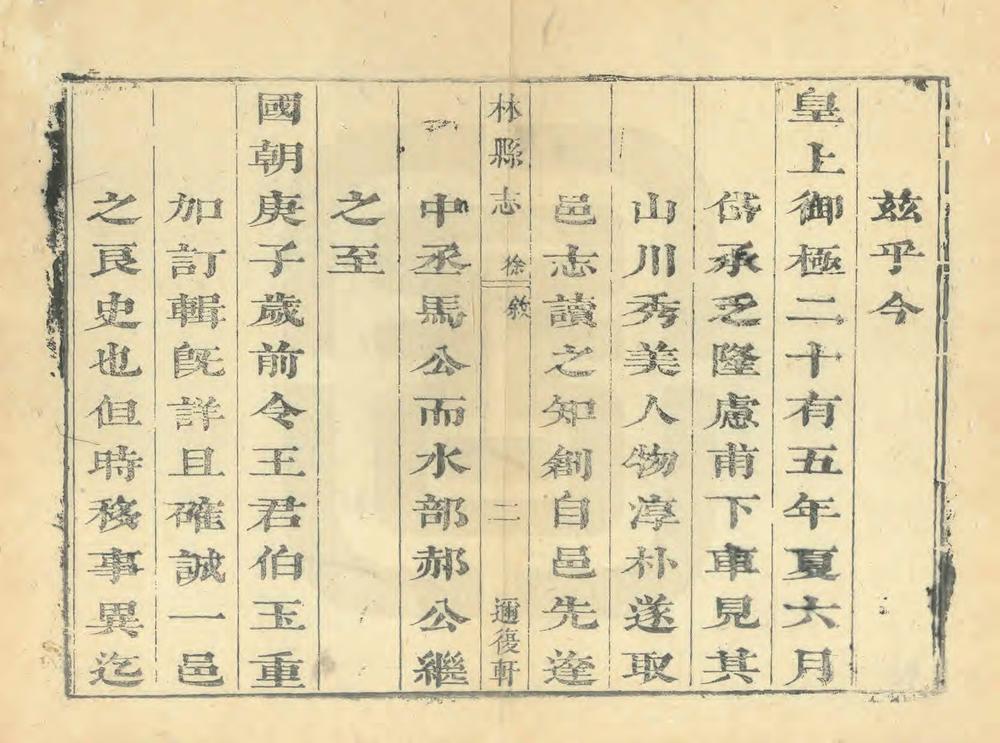 茲乎今
皇上御極二十有五年夏六月
岱承乏隆慮甫下車見其
山川秀美人物淳朴遂取
邑志讀之知創自邑先達
林縣志 徐敘 二 邇復軒
中丞馬公而水部郝公繼
之至
國朝庚子歲前令王君伯玉重
加訂輯旣詳且確誠一邑
之良史也但時移事異迄